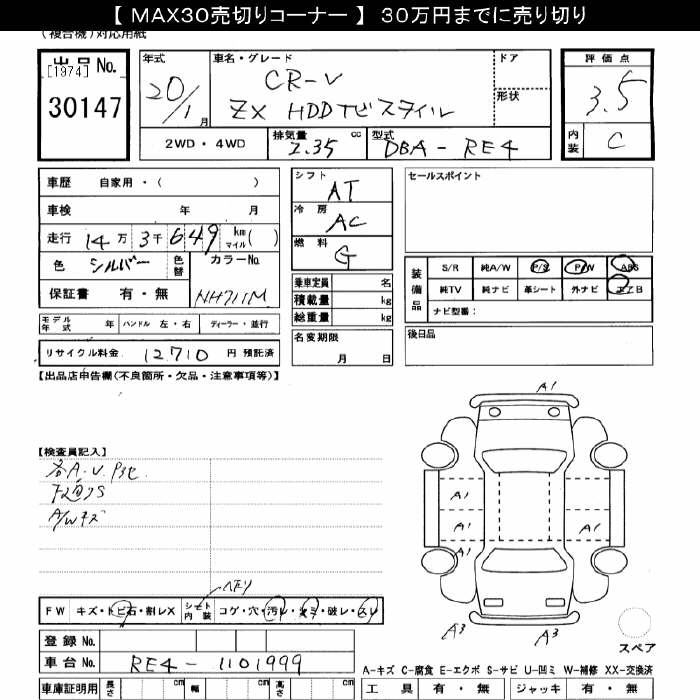 【 MAX30売切りコーナー 】 30万円までに売り切り
(複合機)対応用紙
出品No.
[1974]
30147
年式
20/1月
車名・グレード
CR-V
ZX HDDナビスタイル
ドア
形状
2WD・4WD
排気量 cc
2.35
型式
DBA - RE4
評価点
3.5
内装 C
車歴 自家用・( )
車検 年 月
走行 14万3千649 km マイル( )
色 シルバー 色替
カラーNo.
NH711M
保証書 有・無
シフト AT
冷房 AC
燃料 G
乗車定員 名
積載量 kg
総重量 kg
セールスポイント
装備品
S/R 純A/W P/S P/W ABS
純TV 純ナビ 革シート 外ナビ エアB
ナビ型番:
モデル年式 年 ハンドル 左・右 ディーラー・並行
リサイクル料金 12710 円 預託済
名変期限
月 日
後日品
【出品店申告欄(不良箇所・欠品・注意事項等)】
【検査員記入】
各A・U
A/Wキズ
A1
A1
A1
A1
A1
A3
A3
スペア
FW キズ・トビ石・割レX
シート内装 コゲ・穴・汚レ・キミ・破レ・スレ
登録No.
車台No. RE4 - 1101999
車庫証明用 長さ cm 幅 cm 高さ cm
A-キズ C-腐食 E-エクボ S-サビ U-凹ミ W-補修 XX-交換済
工具 有・無 ジャッキ 有・無